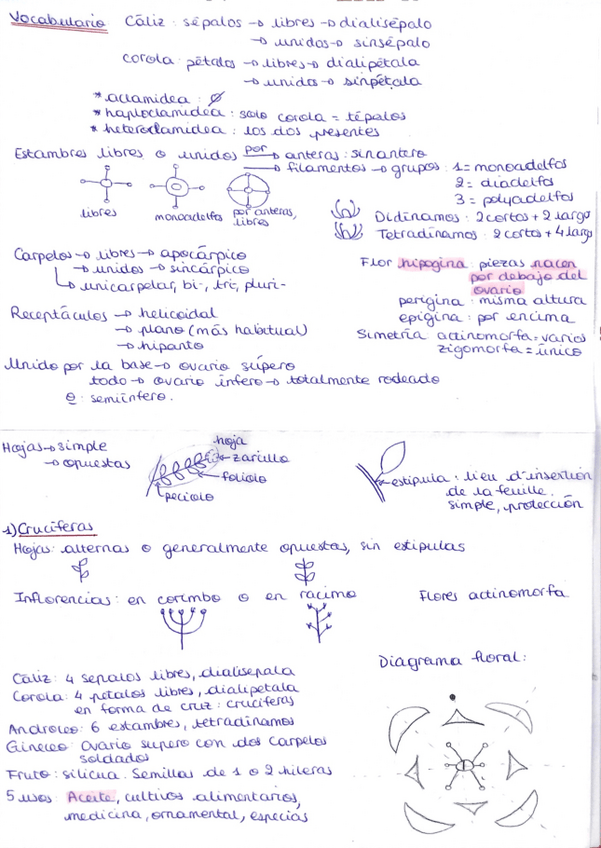 Vocabulario Cáliz: sépalos → libres → dialisépalo
→ unidos → sinsépalo
corola: pétalos → libres → dialipétala
→ unidos → sinpétala
* aclamidea: Ø
* haploclamidea: solo corola = tépalos
* heteroclamidea: los dos presentes
Estambres libres o unidos por → anteras: sinantero
→ filamentos → grupos: 1 = monoadelfos
2 = diadelfos
3 = polyadelfos
libres monoadelfos por anteras, libres
Didinamos: 2 cortos + 2 largo
Tetradinamos: 2 cortos + 4 largo
Carpelos → libres → apocárpico
→ unidos → sincárpico
→ unicarpelar, bi-, tri, pluri-
Flor hipogina: piezas nacen
por debajo del
ovario
perigina: misma altura
epigina: por encima
Receptáculos → helicoidal
→ plano (más habitual)
→ hipanto
Simetría actinomorfa = varios
zigomorfa = único
Unido por la base → ovario súpero
todo → ovario ínfero → totalmente rodeado
: semiínfero.
Hojas → simple
→ opuestas
hoja
zarcillo
foliolo
peciolo
estipula: lieu d'insertion
de la feuille.
simple, protección
1) Crucíferas
Hojas: alternas o generalmente opuestas, sin estipulas
Inflorencias: en corimbo o en racimo Flores actinomorfa
Cáliz: 4 sepalos libres, dialisepala
Corola: 4 pétalos libres, dialipetala
en forma de cruz: crucíferas
Androceo: 6 estambres, tetradinamos
Gineceo: Ovario supero con dos carpelos
soldados
Fruto: silicua. Semillas de 1 o 2 hileras
5 usos: Aceite, cultivos alimentarios,
medicina, ornamental, especias
Diagrama floral: